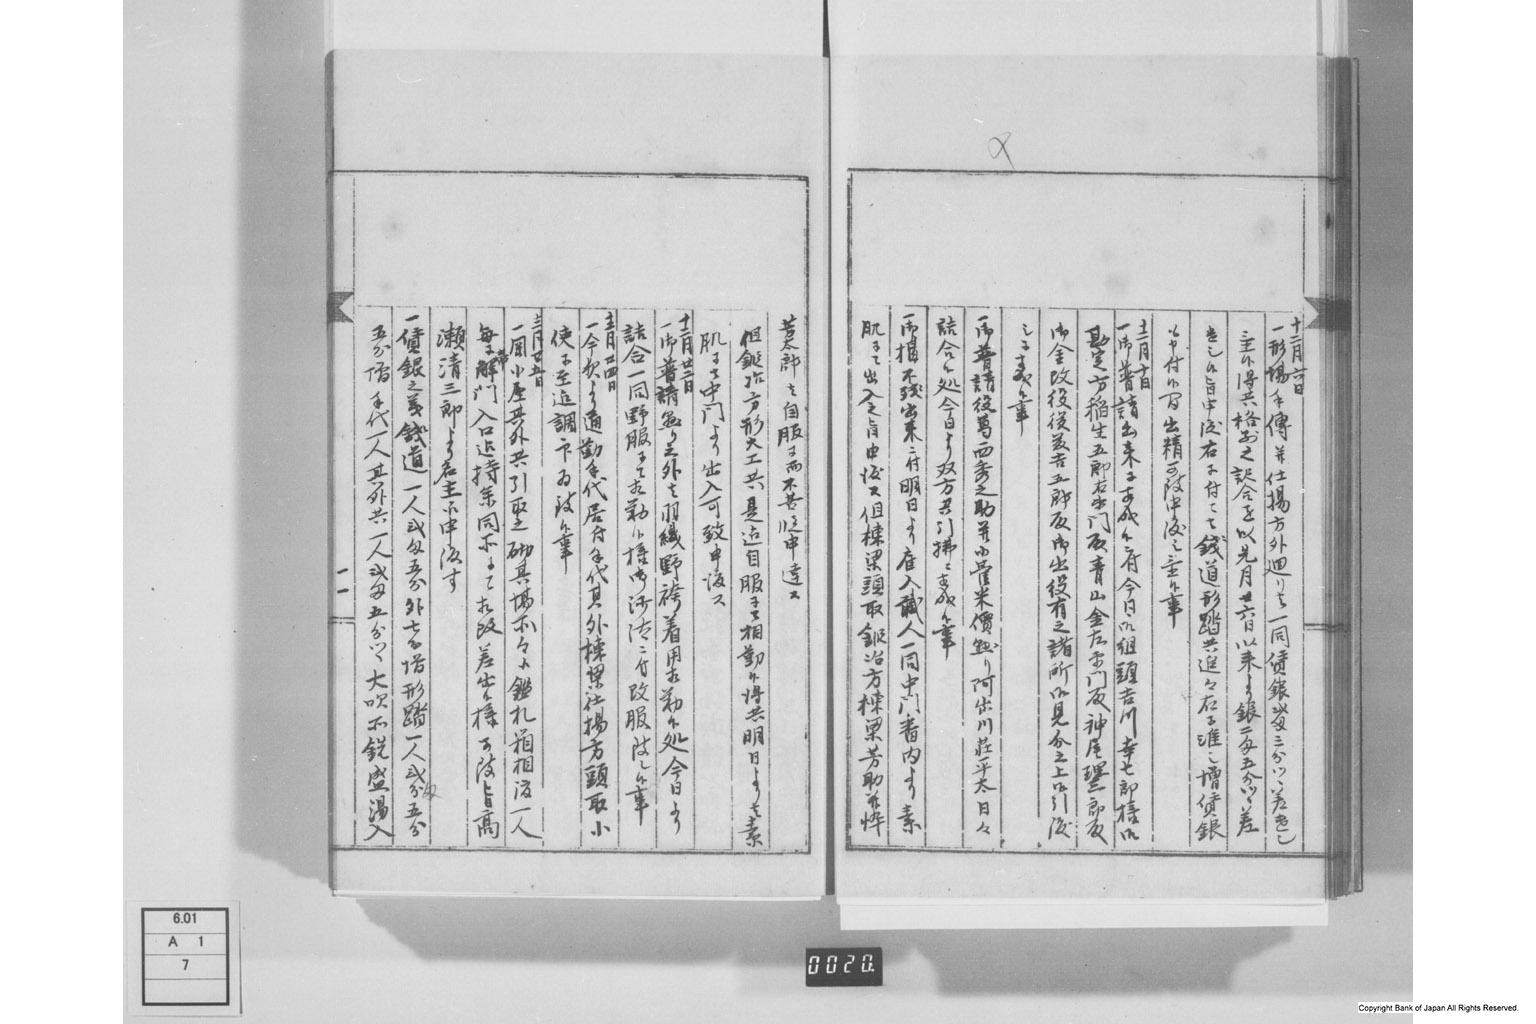 十二月六日
一形場手傳并仕揚方外廻り之一同賃銀貳匁三分ツヽ差出し
主候得共格別之訳合を以先月廿六日以来より銀二匁五分ツヽ差
出し候旨申渡右ニ付而ハ銭道形踏共追々右ニ准し増賃銀
申付候間出精可致申渡し主候事
十二月十日
一御普請出来ニ相成候ニ付今日御組頭吉川幸七郎様御
勘定方稲生五郎右衛門殿青山金左衛門殿神尾理一郎殿
御金改役後藤吉五郎殿御出役有之諸所御見分之上御引渡
ニ相成候事
一御普請役葛西秀之助并小菅米價懸り阿出川荘平太日々
詰合候処今日より双方共引拂ニ相成候事
一御場不残出来ニ付明日より在入職人一同中門番内より素
肌ニて出入之旨申渡ス但棟梁頭取鍛冶方棟梁芳助并悴
芳太郎は自服ニ而不苦段申達ス
但鍛冶方形大工共是迄自服ニて相勤候得共明日よりは素
肌ニて中門より出入可致申渡ス
十二月廿二日
一御普請懸り之外は羽織野袴着用相勤候処今日より
詰合一同野服ニて相勤候様御沙汰ニ付改服致し候事
十二月廿四日
一今夜より通勤手代居付手代其外棟梁仕揚方頭取小
使ニ至迄調下ゐ致候事
十二月廿五日
一風小屋其外共引取之砌其場所々々小鑑札箱相渡一人
毎ニ解門入口迄持参同所ニて相改差出候様可致旨高
瀬清三郎より名主江申渡す
一賃銀之義銭道一人貳匁五分外七分増形踏一人貳匁五分
五分増手代一人其外共一人貳匁五分ツヽ大吹所銑盛湯入
6.01
A 1
7
0020
Copyright Bank of Japan All Rights Reserved.